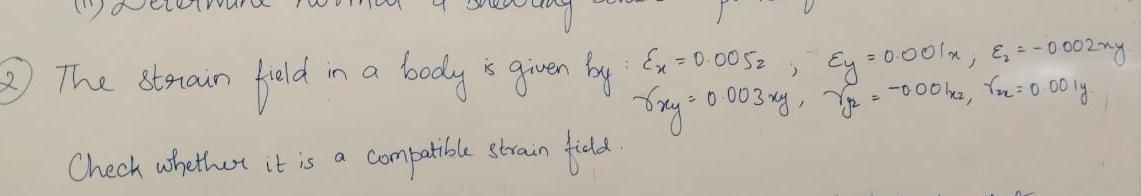 (ii) Determine normal & shearing
2 The strain field in a body is given by : εx = 0.005z ; εy = 0.001x, εz = -0.002xy
γxy = 0.003xy, γyz = -0.001xz, γzx = 0.001y.
Check whether it is a compatible strain field.